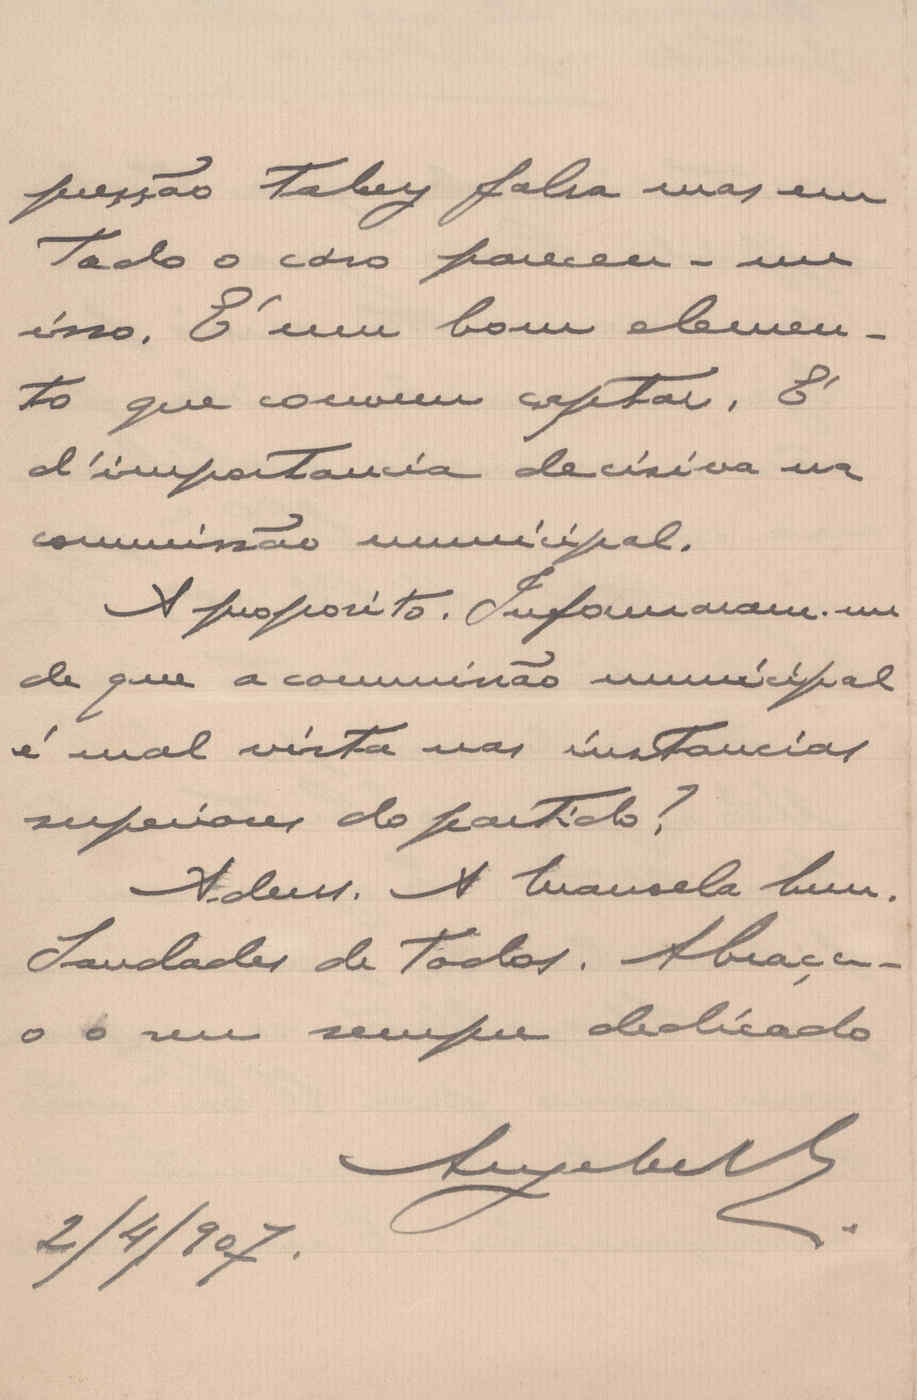 pressão talvez falsa mas em
todo o caso pareceu-me
isso. É um bom elemen-
to que convem captar. É
d'importancia decisiva na
commissão municipal.
A proposito. Informaram-me
de que a commissão municipal
é mal vista nas instancias
superiores do partido?
Adeus. A Manoela bem.
Saudades de todos. Abraça-
o o seu sempre dedicado
2/4/907.